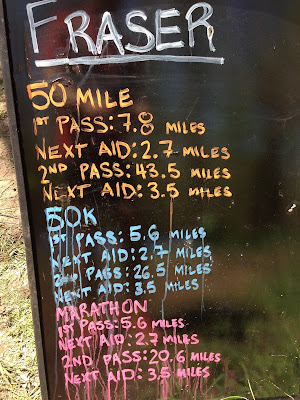 FRASER
50 MILE
1ST PASS: 7.8 MILES
NEXT AID: 2.7 MILES
2ND PASS: 43.5 MILES
NEXT AID: 3.5 MILES
50K
1ST PASS: 5.6 MILES
NEXT AID: 2.7 MILES
2ND PASS: 26.5 MILES
NEXT AID: 3.5 MILES
MARATHON
1ST PASS: 5.6 MILES
NEXT AID: 2.7 MILES
2ND PASS: 20.6 MILES
NEXT AID: 3.5 MILES